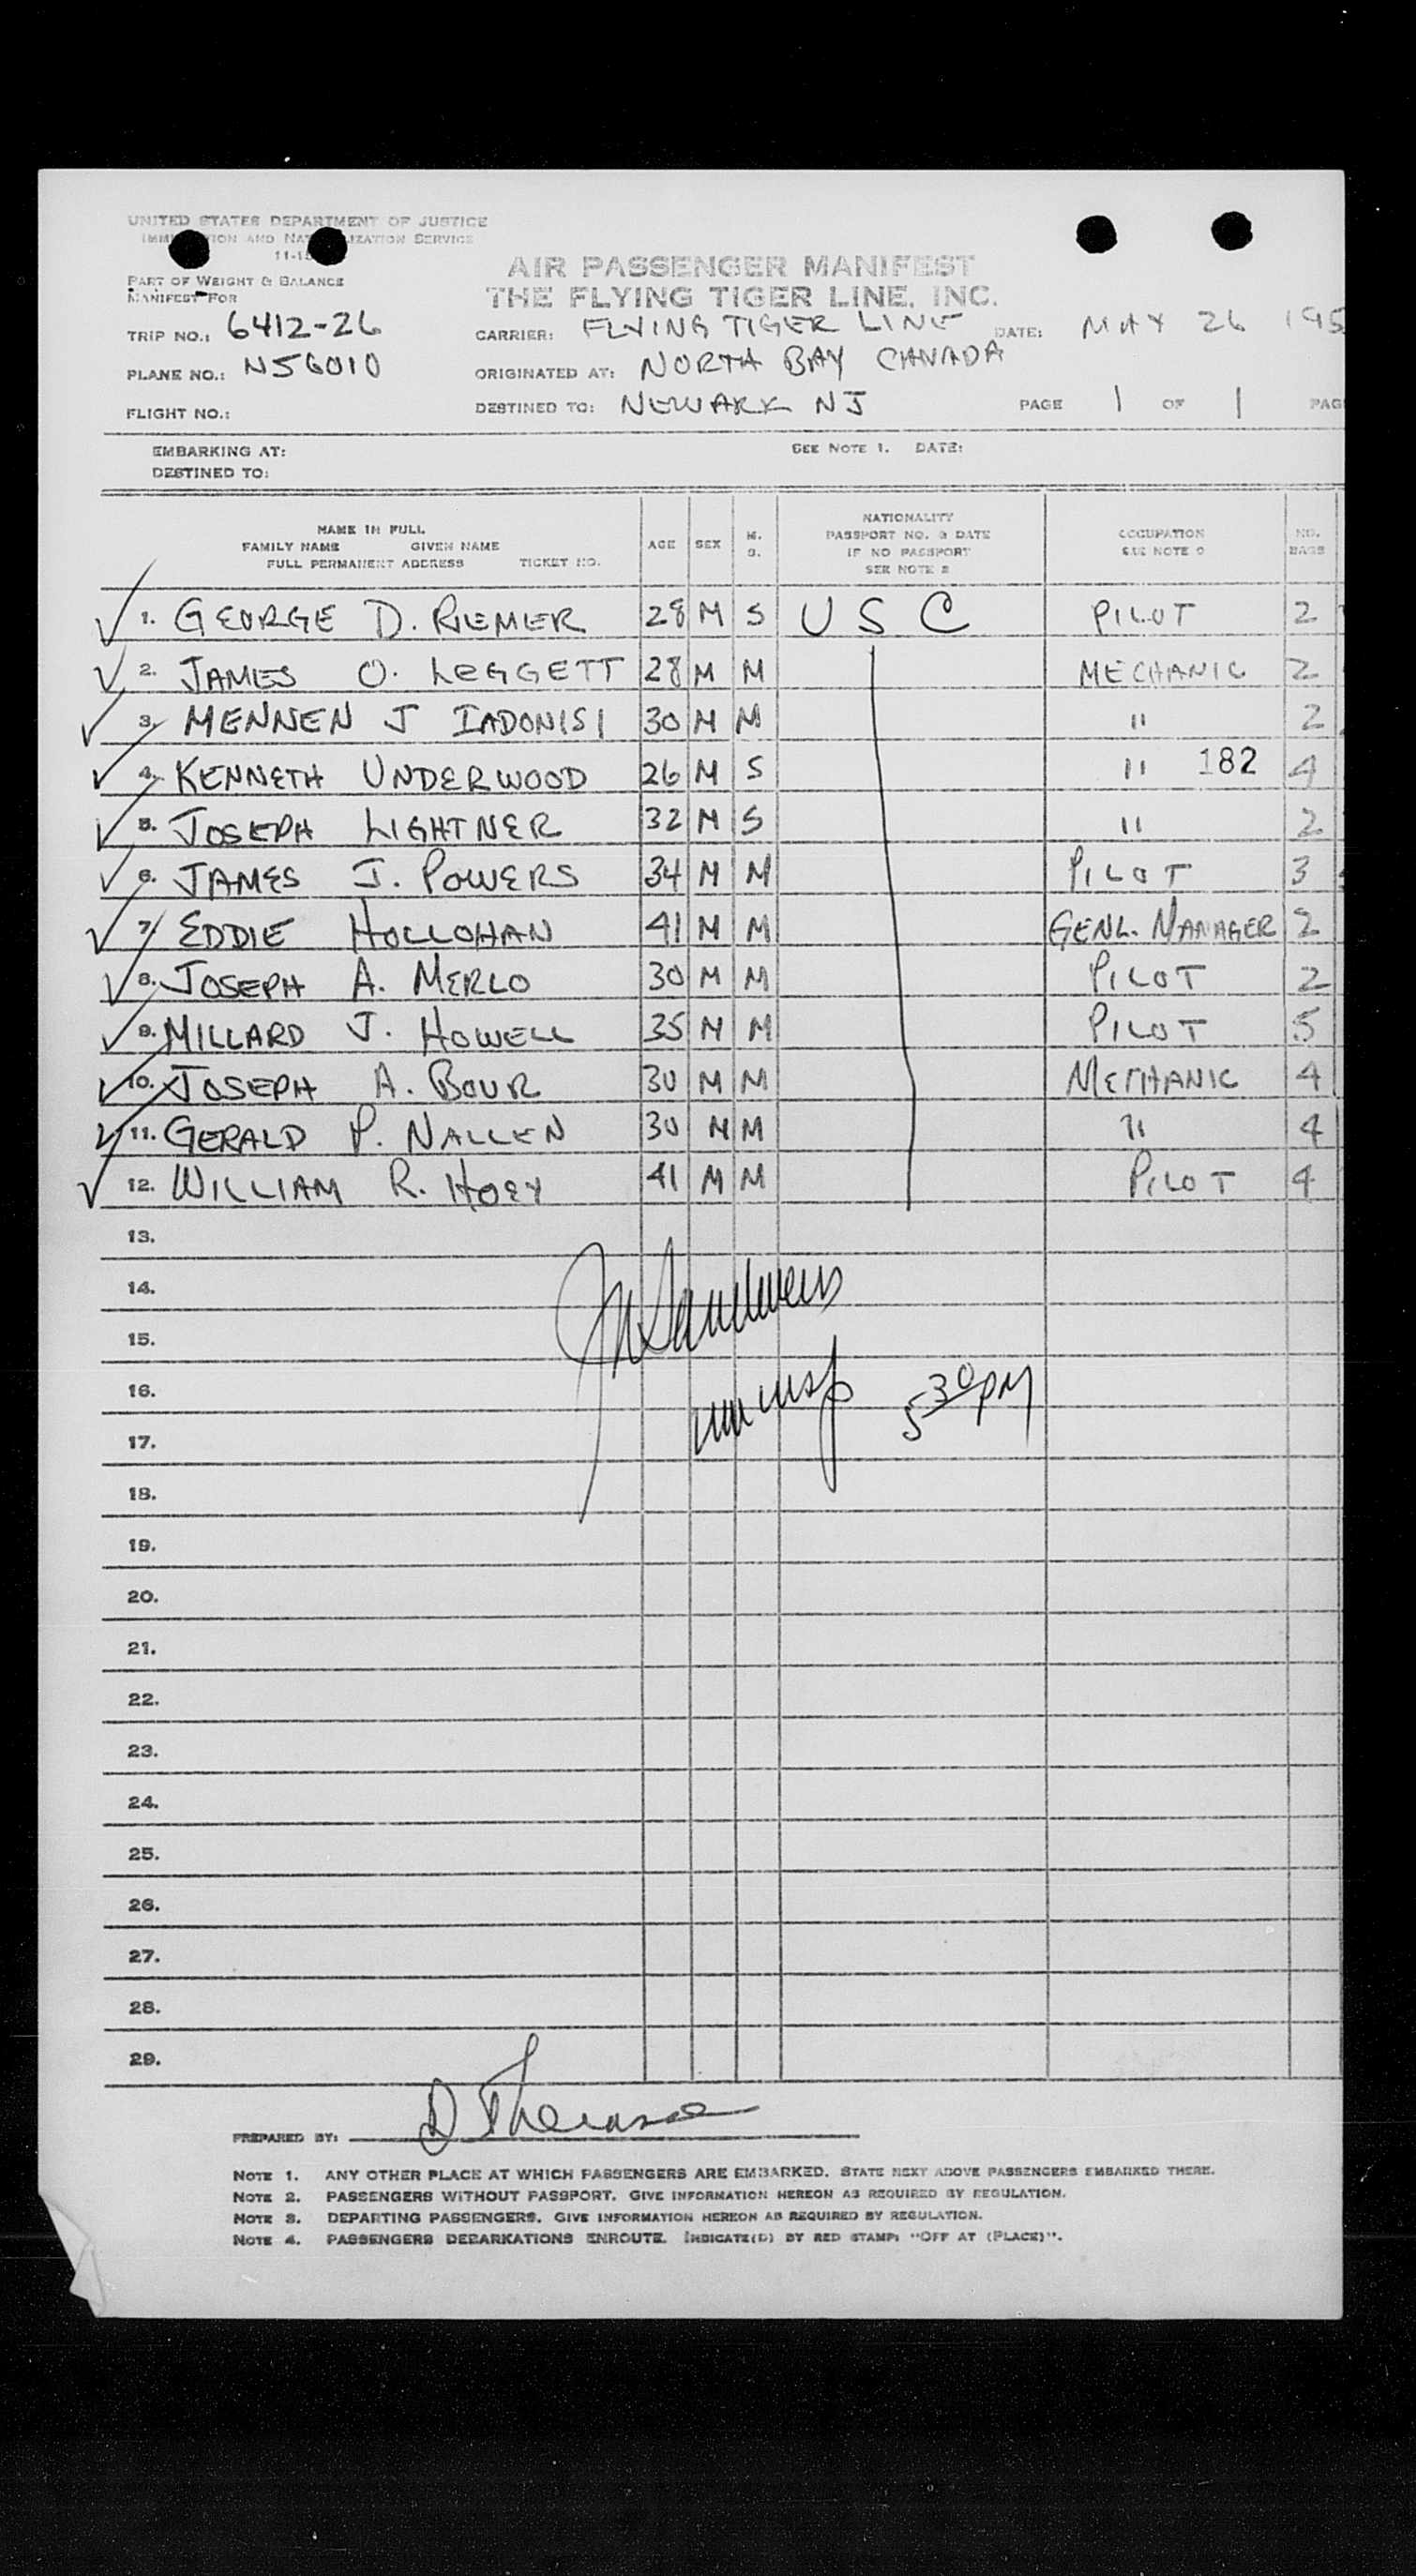 UNITED STATES DEPARTMENT OF JUSTICE
IMMIGRATION AND NATURALIZATION SERVICE
PART OF WEIGHT & BALANCE
MANIFEST FOR
AIR PASSENGER MANIFEST
THE FLYING TIGER LINE, INC.
TRIP NO.: 6412-26 CARRIER: FLYING TIGER LINE DATE: MAY 26 195
PLANE NO.: N56010 ORIGINATED AT: NORTH BAY CANADA
FLIGHT NO.: DESTINED TO: NEWARK NJ PAGE 1 OF 1 PAG
EMBARKING AT: SEE NOTE 1. DATE:
DESTINED TO:
NAME IN FULL
FAMILY NAME GIVEN NAME
FULL PERMANENT ADDRESS TICKET NO.
AGE SEX M. S.
NATIONALITY
PASSPORT NO. & DATE
IF NO PASSPORT
SEE NOTE 2
OCCUPATION
SEE NOTE
NO. BAGS
1. GEORGE D. RIEMER 28 M S U S C PILOT 2
2. JAMES O. LEGGETT 28 M M MECHANIC 2
3. MENNEN J IADONISI 30 M M " 2
4. KENNETH UNDERWOOD 26 M S " 182 4
5. JOSEPH LIGHTNER 32 M S " 2
6. JAMES J. POWERS 34 M M PILOT 3
7. EDDIE HOLLOHAN 41 M M GENL. MANAGER 2
8. JOSEPH A. MERLO 30 M M PILOT 2
9. MILLARD J. HOWELL 35 M M PILOT 5
10. JOSEPH A. BOUR 30 M M MECHANIC 4
11. GERALD P. NALLEN 30 M M " 4
12. WILLIAM R. HOEY 41 M M PILOT 4
13.
14.
15.
16.
530 PM
17.
18.
19.
20.
21.
22.
23.
24.
25.
26.
27.
28.
29.
PREPARED BY:
NOTE 1. ANY OTHER PLACE AT WHICH PASSENGERS ARE EMBARKED. STATE NEXT ABOVE PASSENGERS EMBARKED THERE.
NOTE 2. PASSENGERS WITHOUT PASSPORT. GIVE INFORMATION HEREON AS REQUIRED BY REGULATION.
NOTE 3. DEPARTING PASSENGERS. GIVE INFORMATION HEREON AS REQUIRED BY REGULATION.
NOTE 4. PASSENGERS DEBARKATIONS ENROUTE. INDICATE(D) BY RED STAMP: "OFF AT (PLACE)".